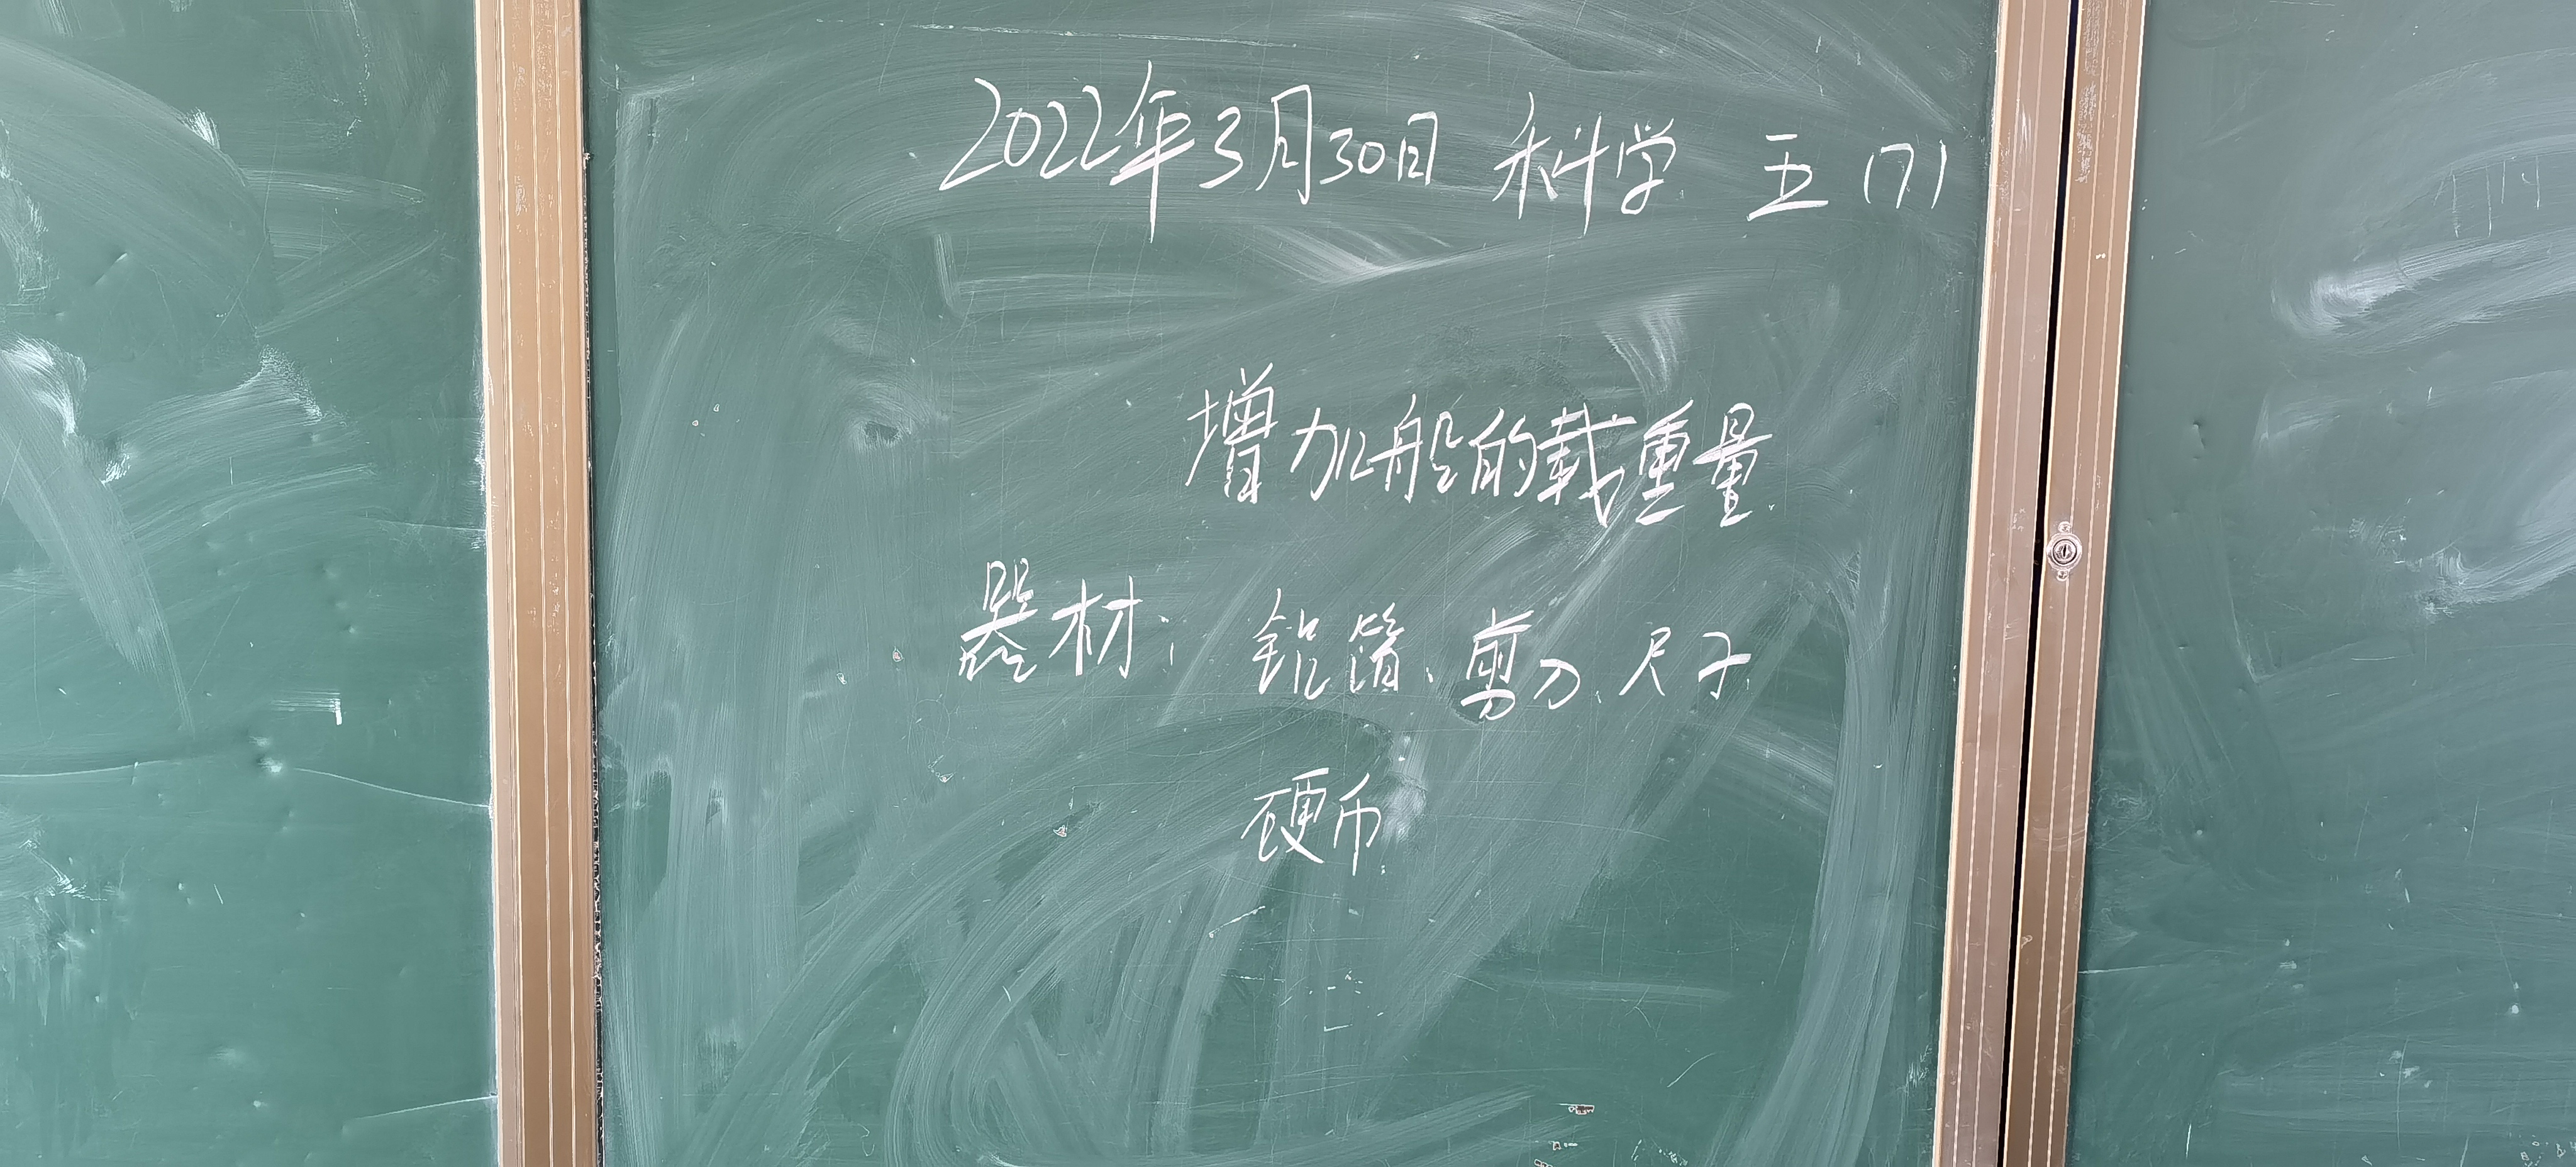 2022年3月30日 科学 五(7)
增加船的载重量
器材: 铝箔、剪刀、尺子
硬币